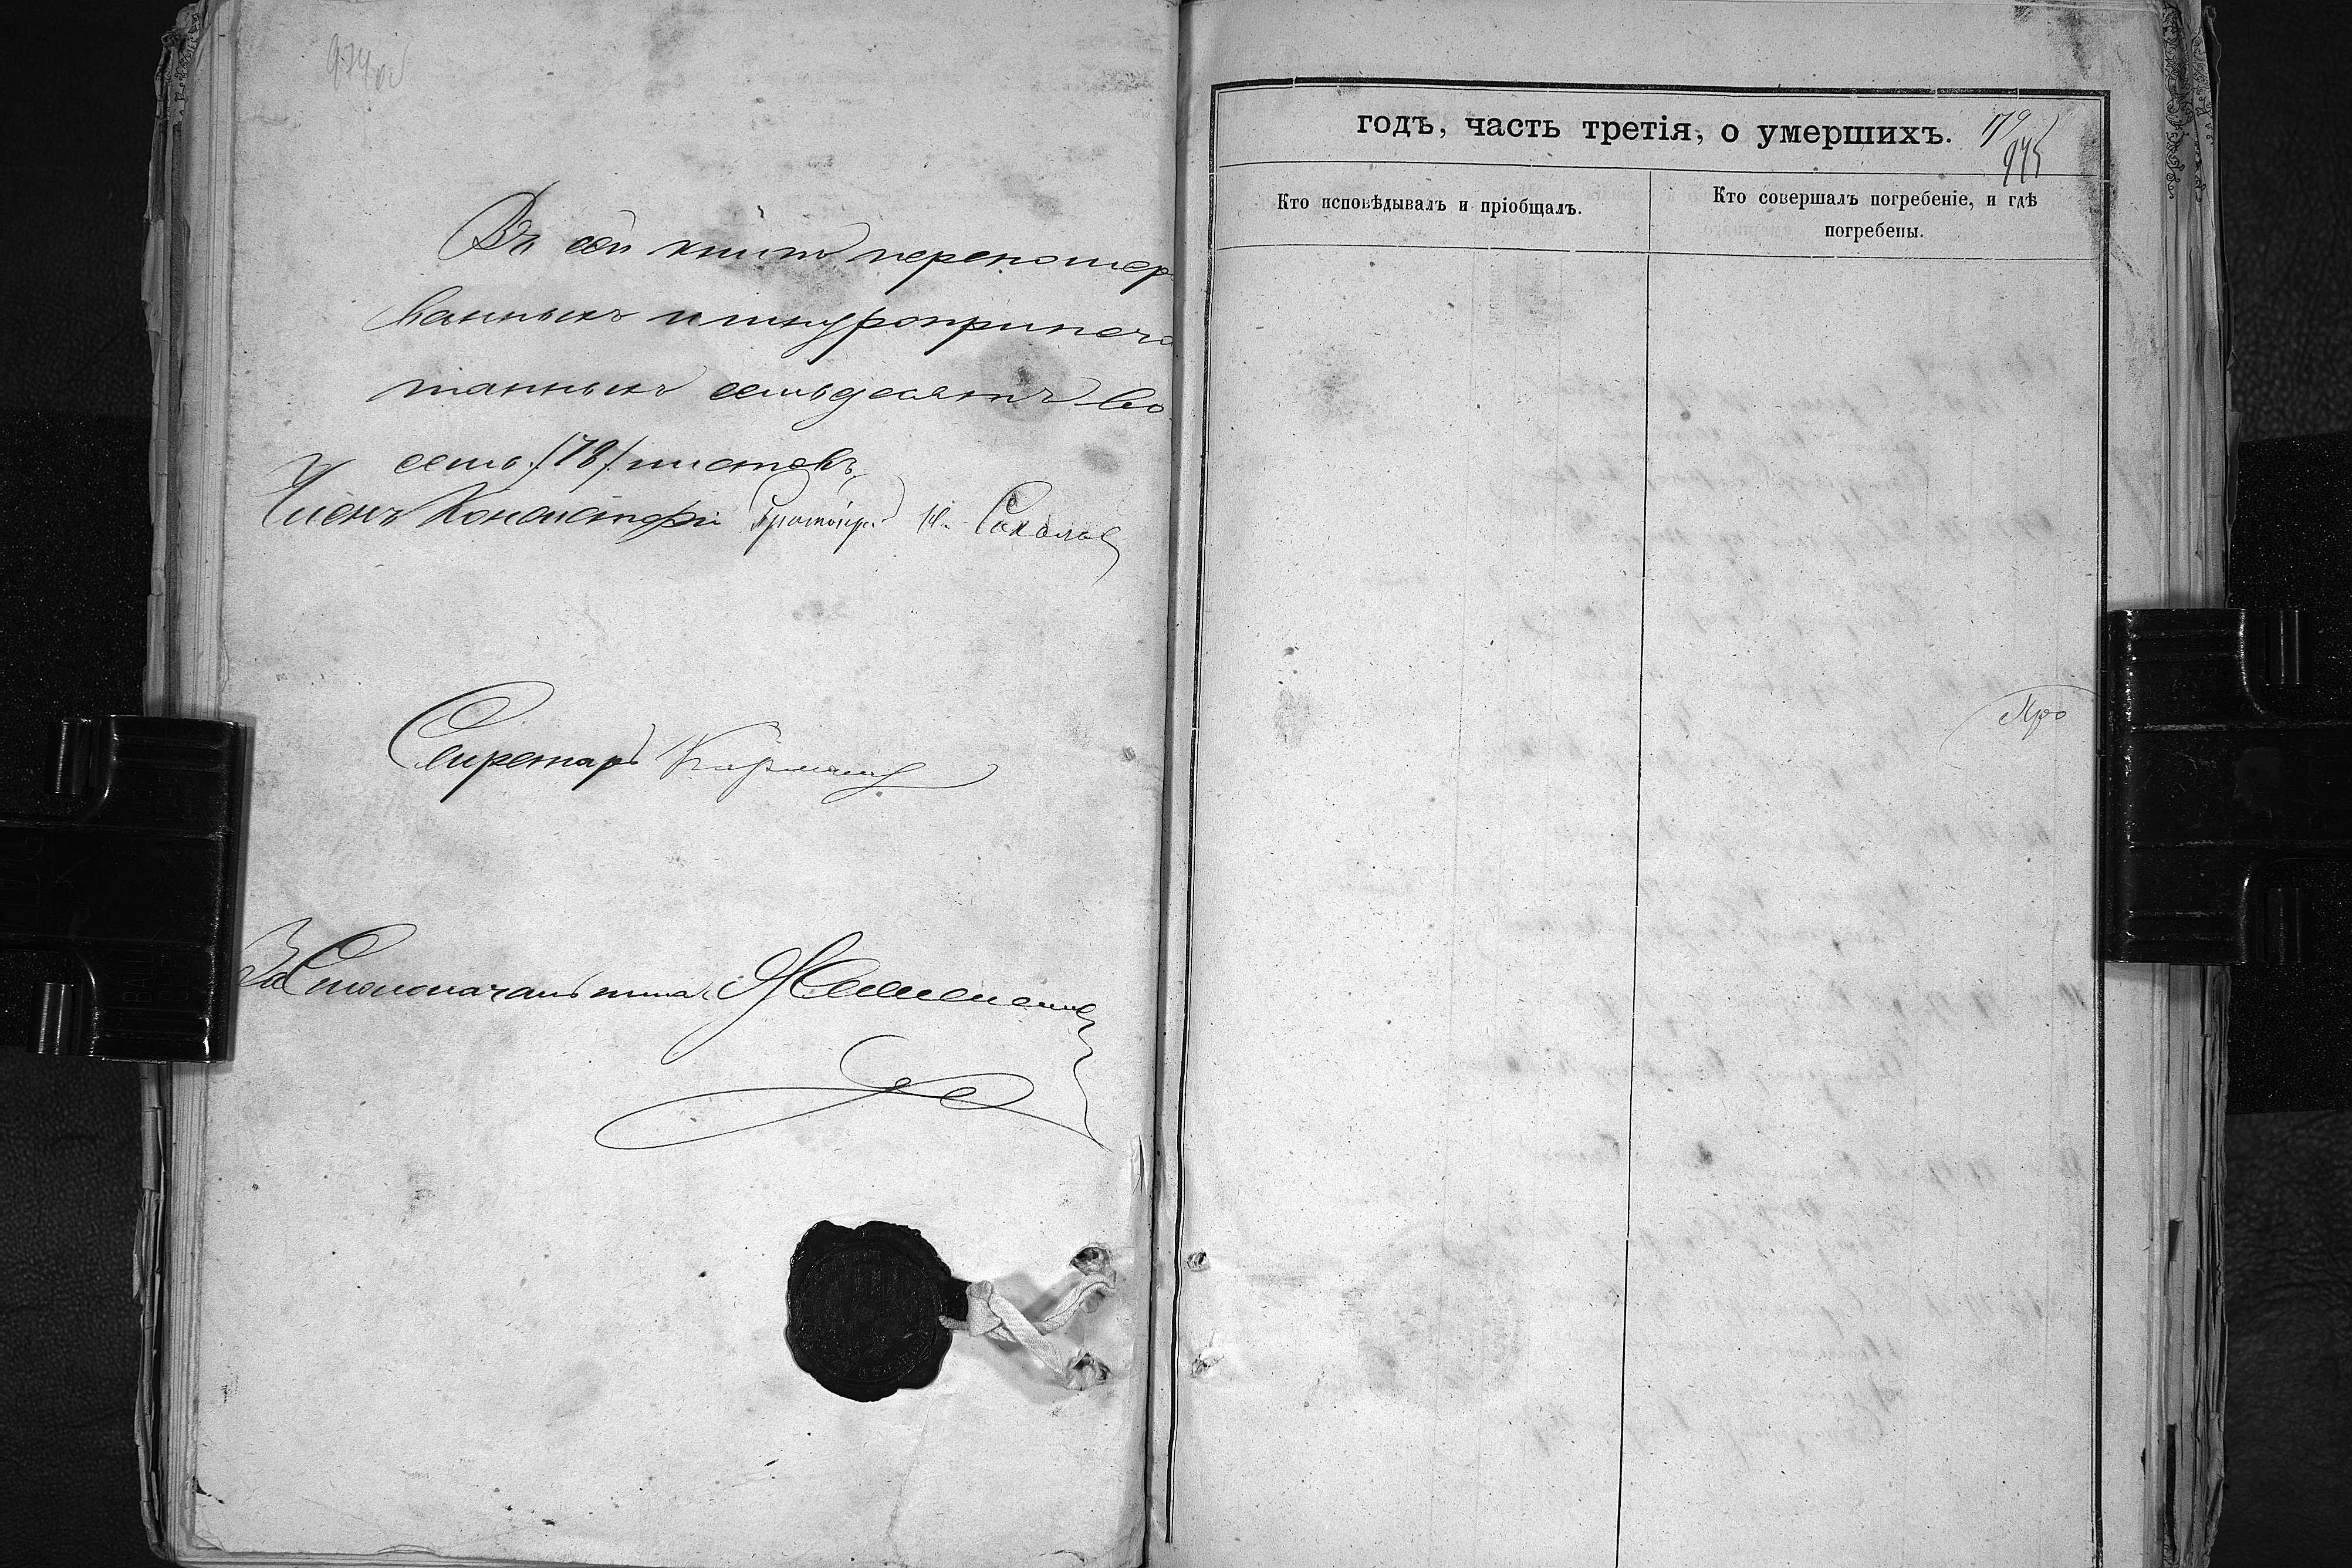 974 об
Въ сей книгѣ перенумеро
ванныхъ и шнуроприпеча
танныхъ семьдесятъ во
семь /78/ листовъ,
Членъ Консисторіи Протоіер. Н. Соколовъ
Секретарь
За Столоначальника
годъ, часть третія, о умершихъ. 179
975
Кто исповѣдывалъ и пріобщалъ.
Кто совершалъ погребеніе, и гдѣ
погребены.
Про